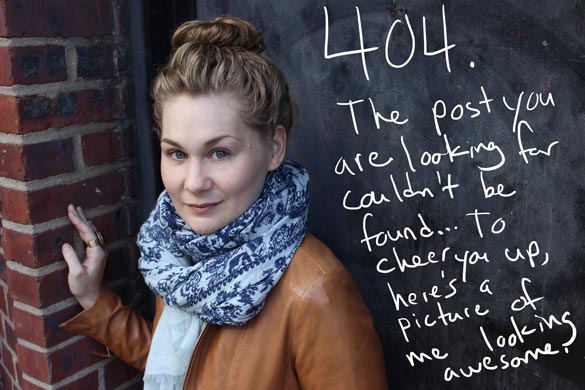 404.
The post you
are looking for
couldn't be
found... To
cheer you up,
here's a
picture of
me looking
awesome!